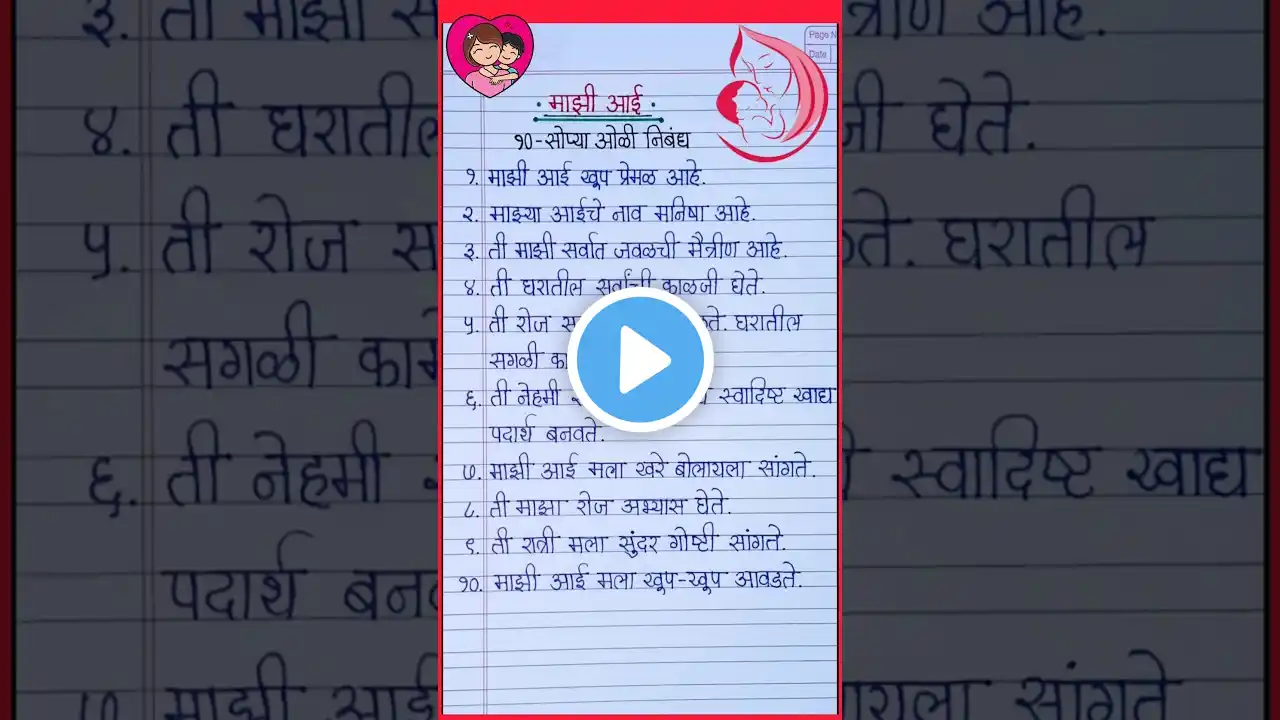 Page N
Date
माझी आई
१०-सोप्या ओळी निबंध
१. माझी आई खूप प्रेमळ आहे.
२. माझ्या आईचे नाव मनिषा आहे.
३. ती माझी सर्वात जवळची मैत्रीण आहे.
४. ती घरातील सर्वांची काळजी घेते.
५. ती रोज स ते. घरातील
सगळी का
६. ती नेहमी स्वादिष्ट खाद्य
पदार्थ बनवते.
७. माझी आई मला खरे बोलायला सांगते.
८. ती माझा रोज अभ्यास घेते.
९. ती रात्री मला सुंदर गोष्टी सांगते.
१०. माझी आई मला खूप-खूप आवडते.